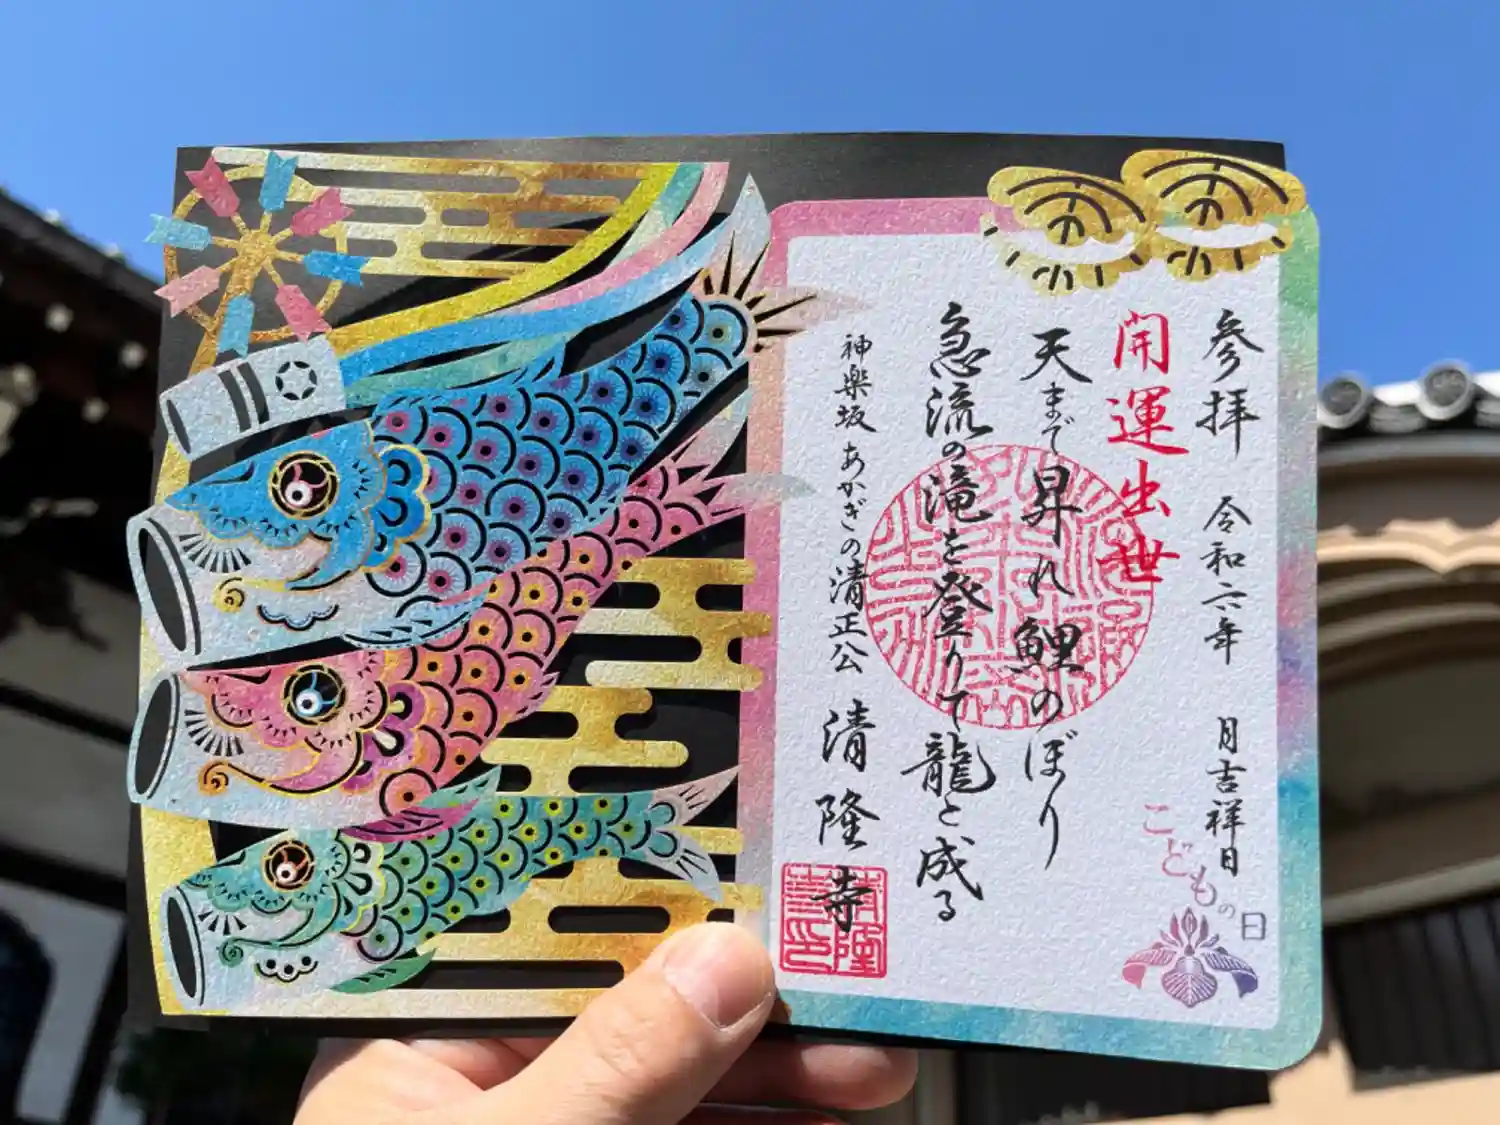 参拝 令和六年 月吉祥日
開運出世
天まで昇れ鯉のぼり
急流の滝を登りて龍と成る
神楽坂 あかぎの清正公 清隆寺
こどもの日